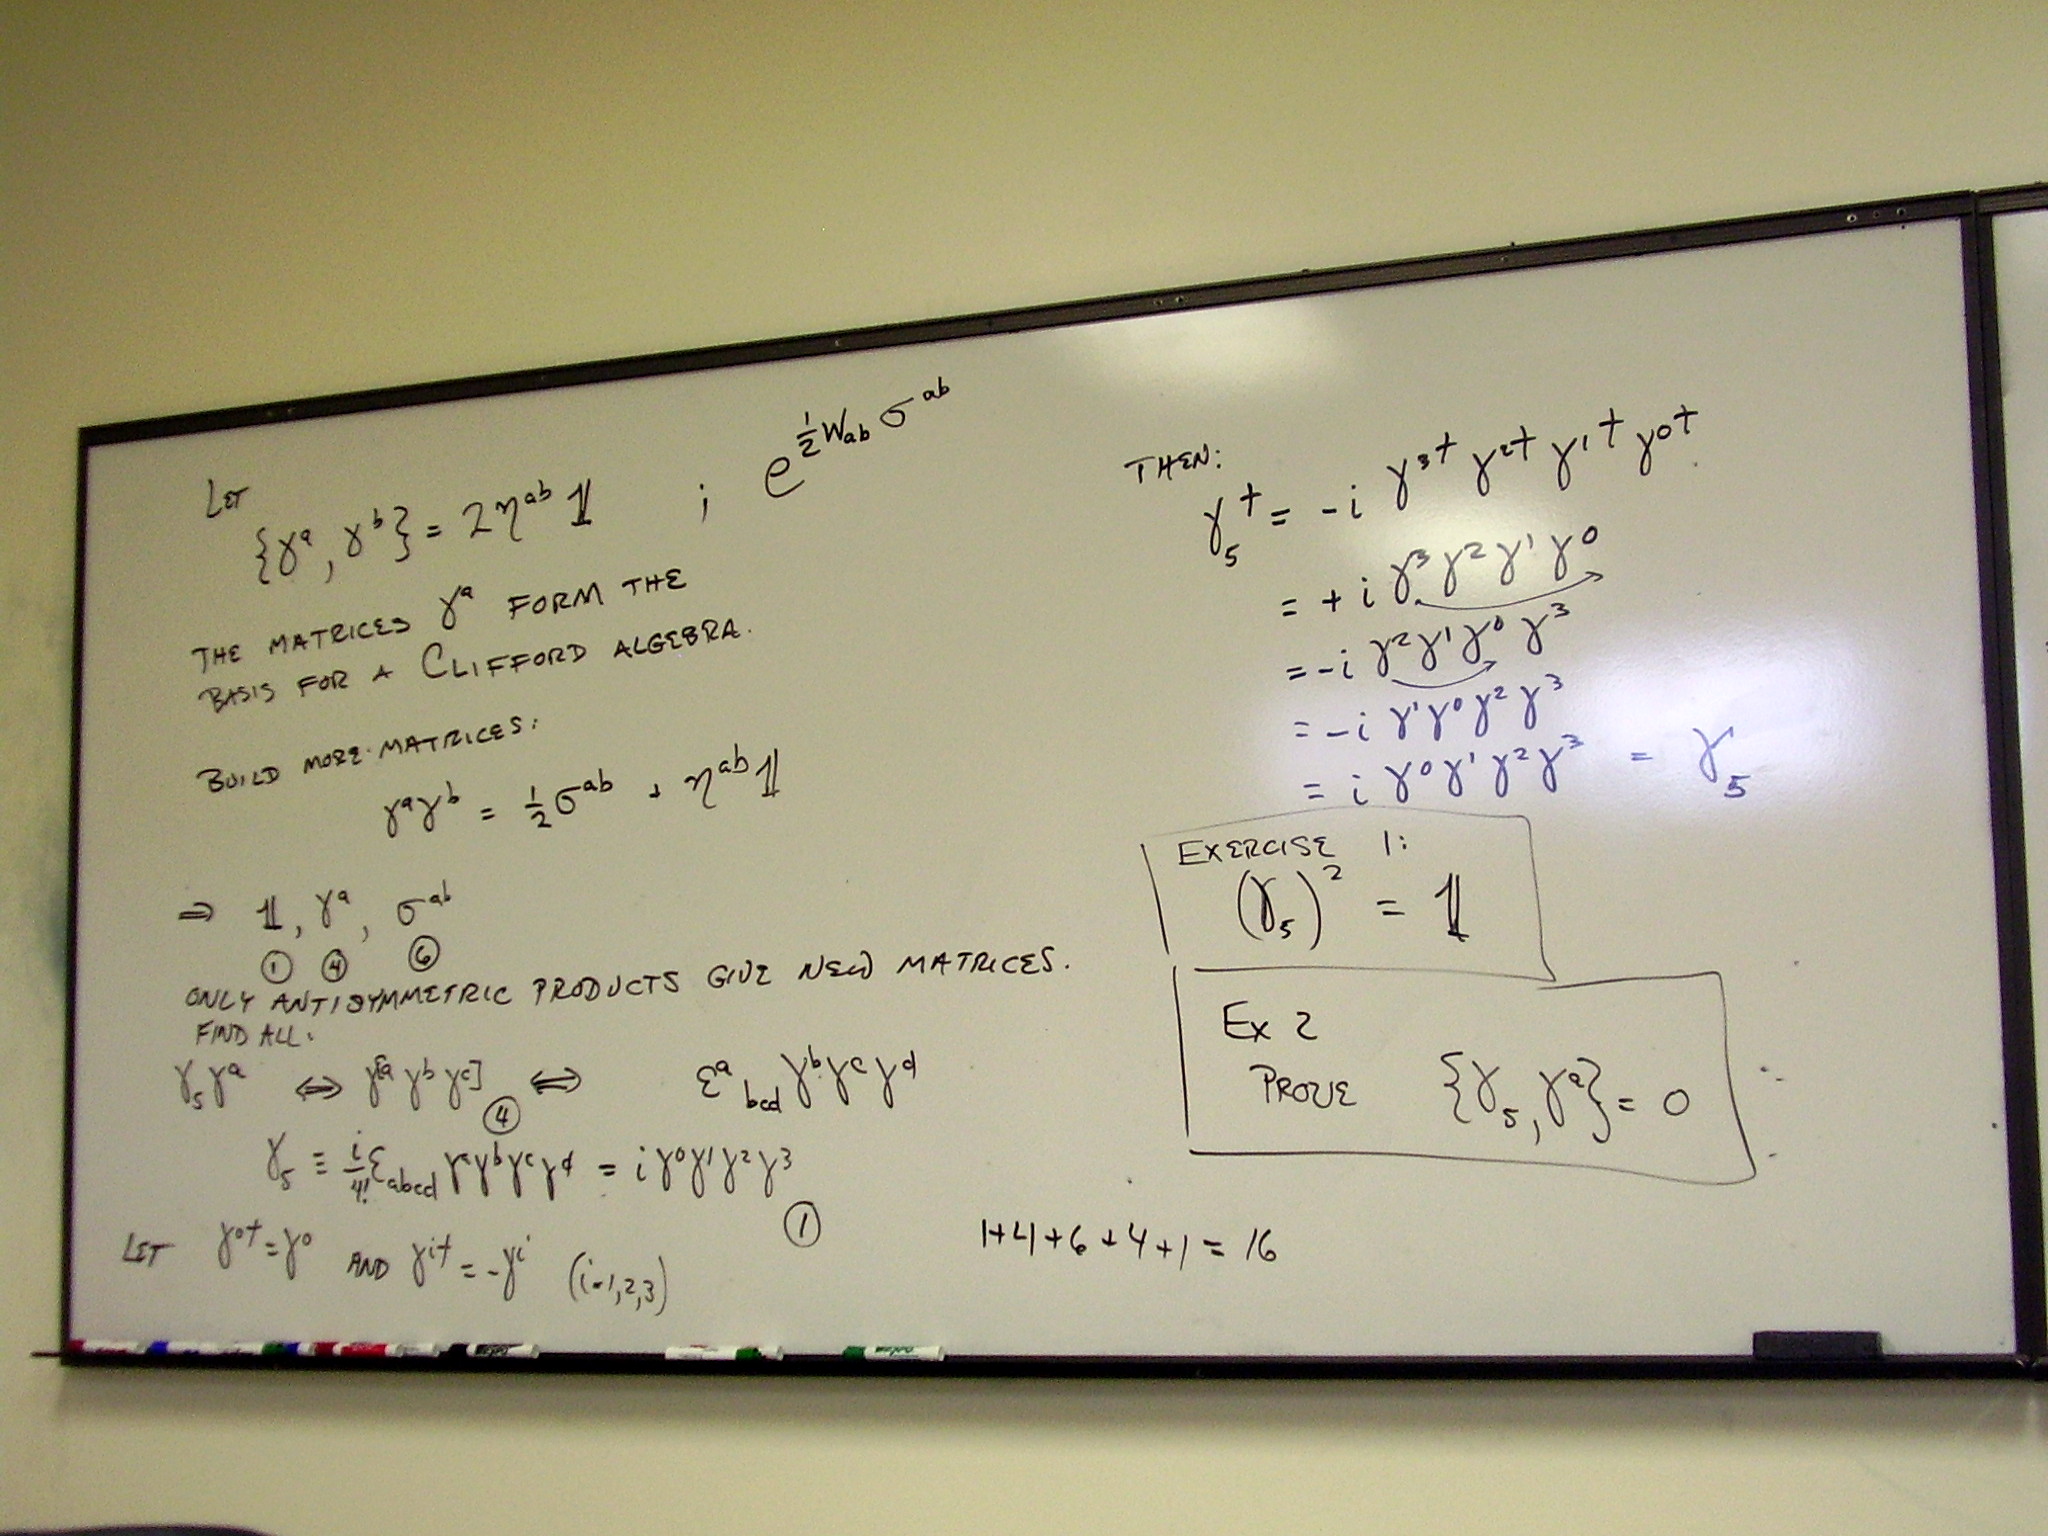 LET
{γᵃ, γᵇ} = 2ηᵃᵇ 𝟙 ; e^{½ W_ab σ^ab}
THE MATRICES γᵃ FORM THE
BASIS FOR A CLIFFORD ALGEBRA.
BUILD MORE MATRICES:
γᵃγᵇ = ½σᵃᵇ + ηᵃᵇ𝟙
⇒ 𝟙, γᵃ, σᵃᵇ
① ④ ⑥
ONLY ANTISYMMETRIC PRODUCTS GIVE NEW MATRICES.
FIND ALL:
γ₅γᵃ ⇔ γ^[a γᵇ γ^c] ⇔ εᵃ_bcd γᵇγᶜγᵈ
④
γ₅ ≡ i/4! ε_abcd γᵃγᵇγᶜγᵈ = i γ⁰γ¹γ²γ³
①
LET γ⁰† = γ⁰ AND γⁱ† = -γⁱ (i=1,2,3)
THEN:
γ₅† = -i γ³† γ²† γ¹† γ⁰†
= + i γ³ γ² γ¹ γ⁰
= -i γ²γ¹γ⁰ γ³
= -i γ¹γ⁰γ²γ³
= i γ⁰γ¹γ²γ³ = γ₅
EXERCISE 1:
(γ₅)² = 𝟙
EX 2
PROVE {γ₅, γᵃ} = 0
1+4+6+4+1 = 16